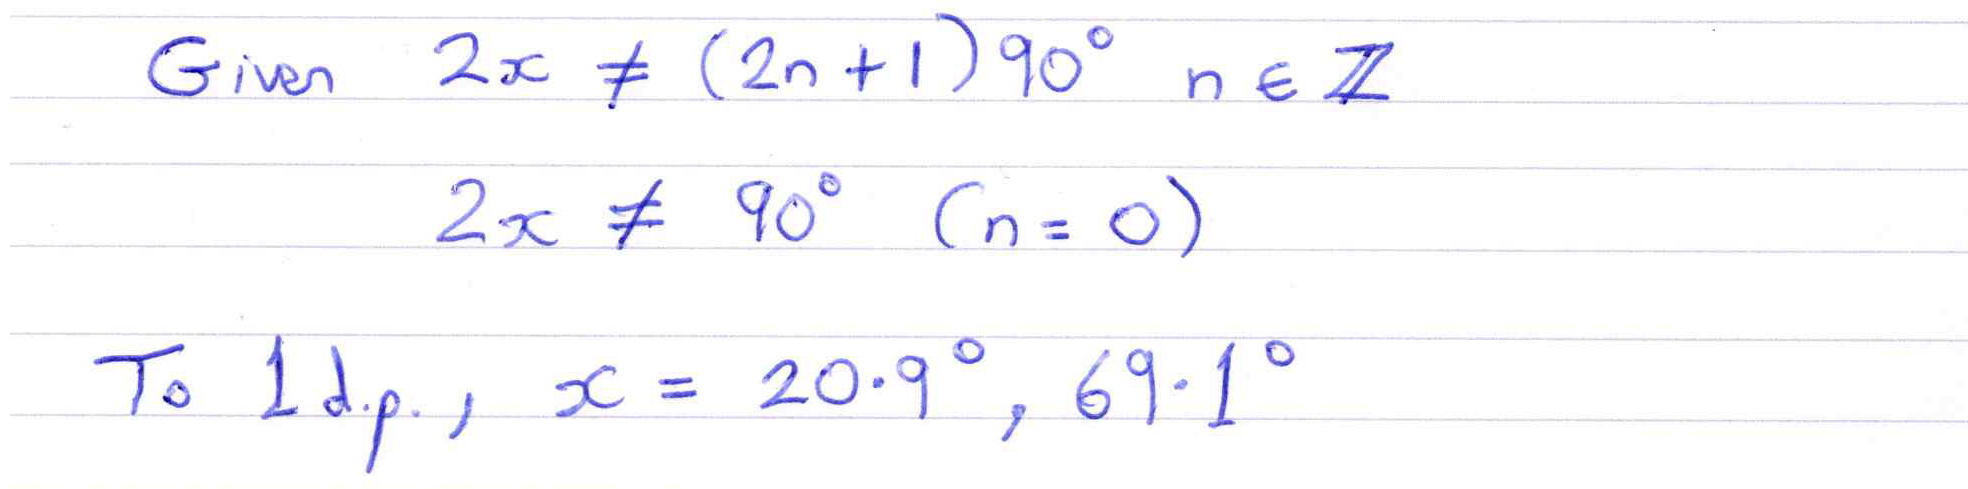 Given 2x ≠ (2n+1)90° n ∈ ℤ
2x ≠ 90° (n = 0)
To 1 d.p., x = 20.9°, 69.1°